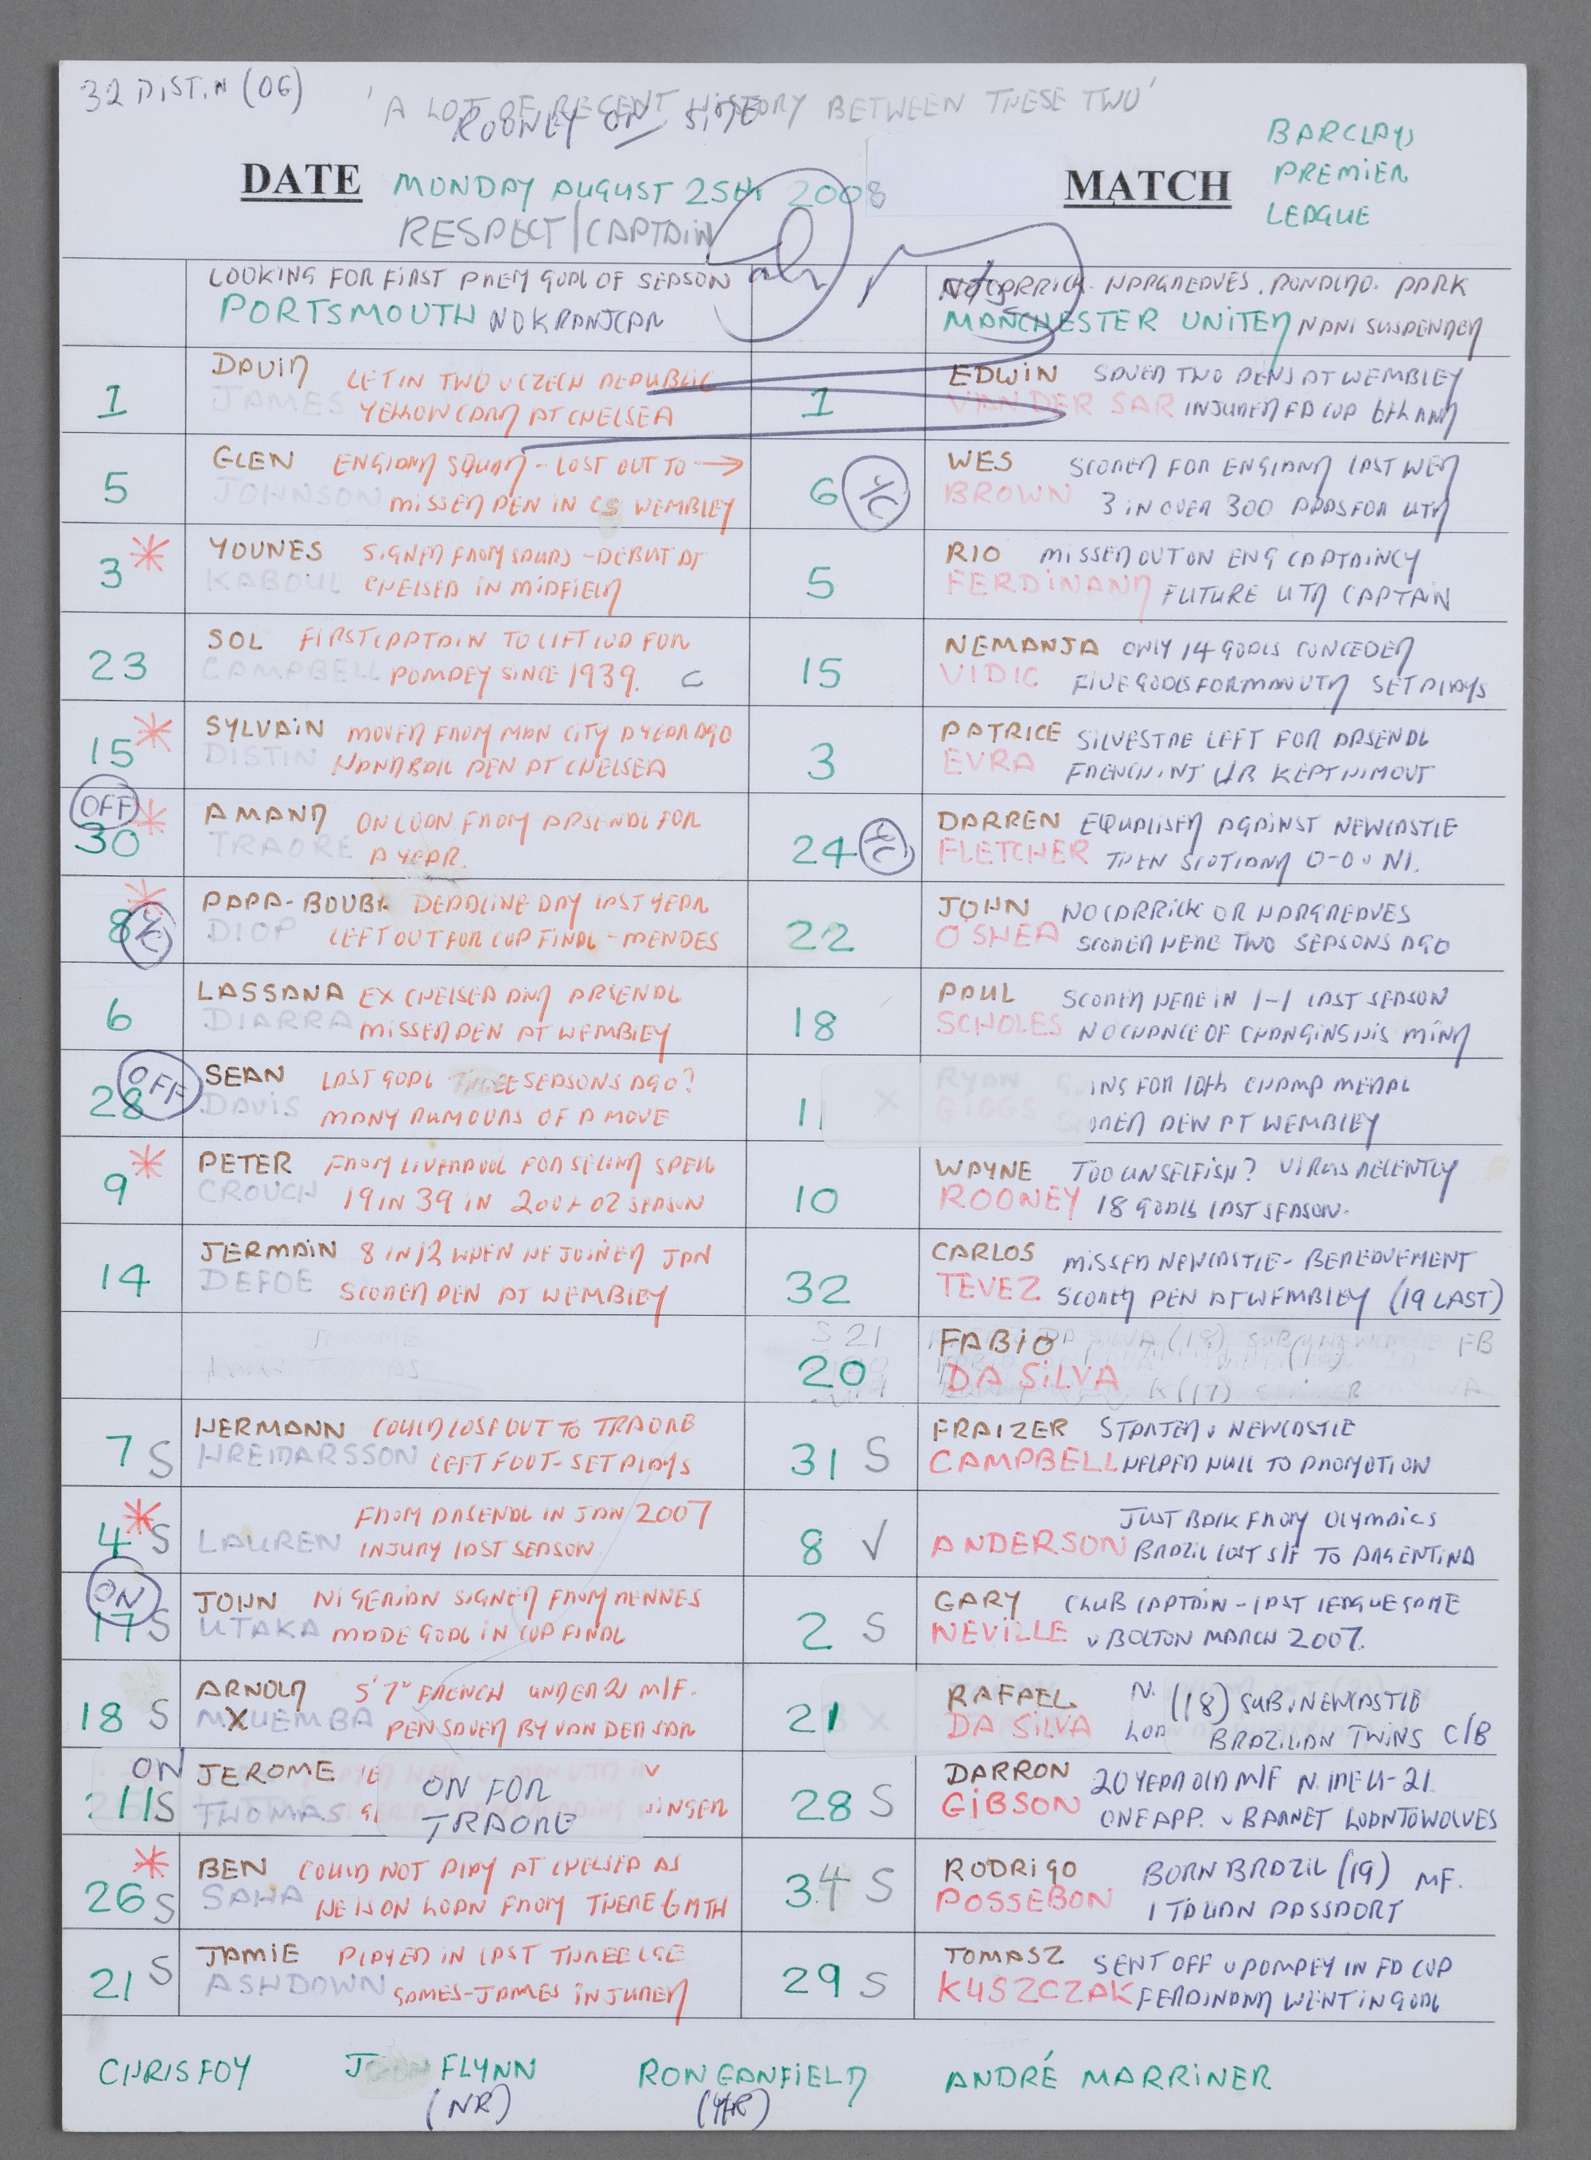 32 DISTIN (OG)
'A LOT OF RECENT HISTORY BETWEEN THESE TWO'
ROONEY ON SITE
BARCLAYS
PREMIER
LEAGUE
DATE MONDAY AUGUST 25th 2008
MATCH
RESPECT/CAPTAIN
LOOKING FOR FIRST PREM GOAL OF SEASON
PORTSMOUTH NO KRANJCAR
NO CARRICK. HARGREAVES. RONALDO. PARK
MANCHESTER UNITED NANI SUSPENDED
1 DAVID LET IN TWO v CZECH REPUBLIC
JAMES YELLOW CARD AT CHELSEA
1 EDWIN SAVED TWO PENS AT WEMBLEY
VAN DER SAR INJURED FA CUP 6th RND
5 GLEN ENGLAND SQUAD - LOST OUT TO →
JOHNSON MISSED PEN IN CS WEMBLEY
6 Y/C WES SCORED FOR ENGLAND LAST WED
BROWN 3 IN OVER 300 APPS FOR UTD
3 * YOUNES SIGNED FROM SPURS - DEBUT AT
KABOUL CHELSEA IN MIDFIELD
5 RIO MISSED OUT ON ENG CAPTAINCY
FERDINAND FUTURE UTD CAPTAIN
23 SOL FIRST CAPTAIN TO LIFT CUP FOR
CAMPBELL POMPEY SINCE 1939. C
15 NEMANJA ONLY 14 GOALS CONCEDED
VIDIC FIVE GOALS FOR MAN UTD SET PLAYS
15 * SYLVAIN MOVED FROM MAN CITY A YEAR AGO
DISTIN HANDBALL PEN AT CHELSEA
3 PATRICE SILVESTRE LEFT FOR ARSENAL
EVRA FRENCH INT L/B KEPT HIM OUT
OFF 30 * AMAND ON LOAN FROM ARSENAL FOR
TRAORE A YEAR.
24 Y/C DARREN EQUALISED AGAINST NEWCASTLE
FLETCHER THEN SCOTLAND 0-0 v NI.
8 * Y/C PAPA-BOUBA DEADLINE DAY LAST YEAR
DIOP LEFT OUT FOR CUP FINAL - MENDES
22 JOHN NO CARRICK OR HARGREAVES
O'SHEA SCORED HERE TWO SEASONS AGO
6 LASSANA EX CHELSEA AND ARSENAL
DIARRA MISSED PEN AT WEMBLEY
18 PAUL SCORED HERE IN 1-1 LAST SEASON
SCHOLES NO CHANCE OF CHANGING HIS MIND
28 OFF SEAN LAST GOAL THREE SEASONS AGO?
DAVIS MANY RUMOURS OF A MOVE
11 X RYAN ING FOR 10th CHAMP MEDAL
GIGGS SCORED PEN AT WEMBLEY
9 * PETER FROM LIVERPOOL FOR SECOND SPELL
CROUCH 19 IN 39 IN 2001 02 SEASON
10 WAYNE TOO UNSELFISH? VIRUS RECENTLY
ROONEY 18 GOALS LAST SEASON.
14 JERMAIN 8 IN 12 WHEN HE JOINED JAN
DEFOE SCORED PEN AT WEMBLEY
32 CARLOS MISSED NEWCASTLE - BEREAVEMENT
TEVEZ SCORED PEN AT WEMBLEY (19 LAST)
20 FABIO FB
DA SILVA
7 S HERMANN COULD LOSE OUT TO TRAORE
HREIDARSSON LEFT FOOT - SET PLAYS
31 S FRAIZER STARTED v NEWCASTLE
CAMPBELL HELPED HULL TO PROMOTION
4 * S FROM ARSENAL IN JAN 2007
LAUREN INJURY LAST SEASON
8 √ JUST BACK FROM OLYMPICS
ANDERSON BRAZIL LOST S/F TO ARGENTINA
ON 17 S JOHN NIGERIAN SIGNED FROM RENNES
UTAKA MADE GOAL IN CUP FINAL
2 S GARY CLUB CAPTAIN - LAST LEAGUE GAME
NEVILLE v BOLTON MARCH 2007.
18 S ARNOLD 5'7" FRENCH UNDER 21 M/F.
MVUEMBA PEN SAVED BY VAN DER SAR
21 RAFAEL (18) SUB v NEWCASTLE
DA SILVA BRAZILIAN TWINS C/B
ON 11 S JEROME ON FOR
THOMAS TRAORE WINGER
28 S DARRON 20 YEAR OLD M/F N. IRE U-21.
GIBSON ONE APP. v BARNET LOAN TO WOLVES
26 * S BEN COULD NOT PLAY AT CHELSEA AS
SAHA HE IS ON LOAN FROM THERE 6 MTH
34 S RODRIGO BORN BRAZIL (19) MF.
POSSEBON ITALIAN PASSPORT
21 S JAMIE PLAYED IN LAST THREE LGE
ASHDOWN GAMES - JAMES INJURED
29 S TOMASZ SENT OFF v POMPEY IN FA CUP
KUSZCZAK FERDINAND WENT IN GOAL
CHRIS FOY FLYNN RON GANFIELD ANDRÉ MARRINER
(NR) (4/R)